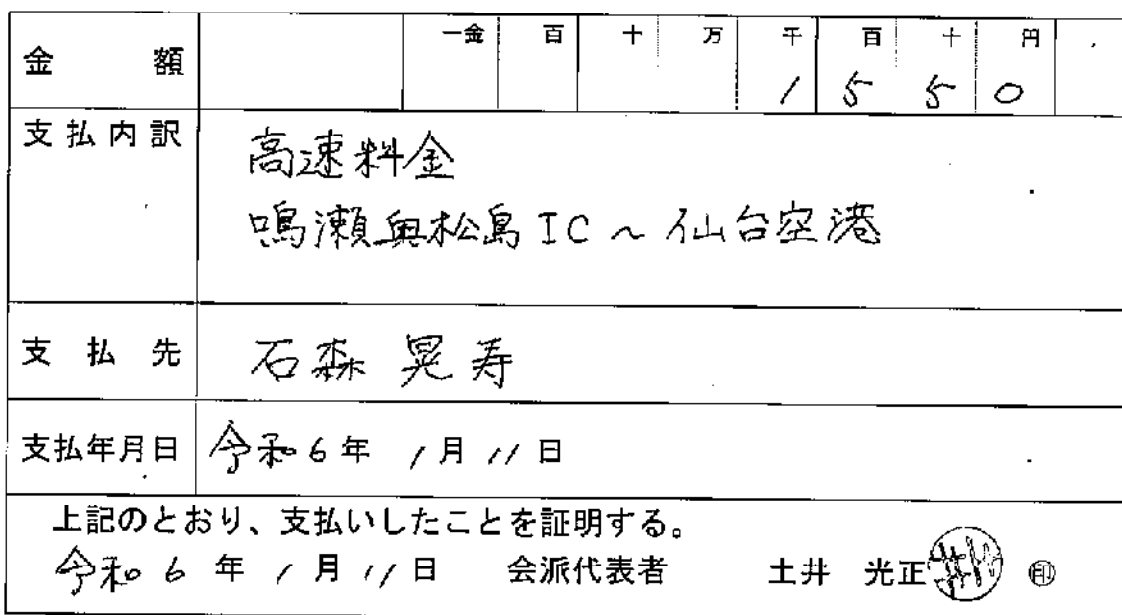 金額 一金 百 十 万 千 百 十 円
1 5 5 0
支払内訳 高速料金
鳴瀬奥松島IC～仙台空港
支払先 石森 晃寿
支払年月日 令和6年 1月11日
上記のとおり、支払いしたことを証明する。
令和6年 1月11日 会派代表者 土井 光正 ㊞